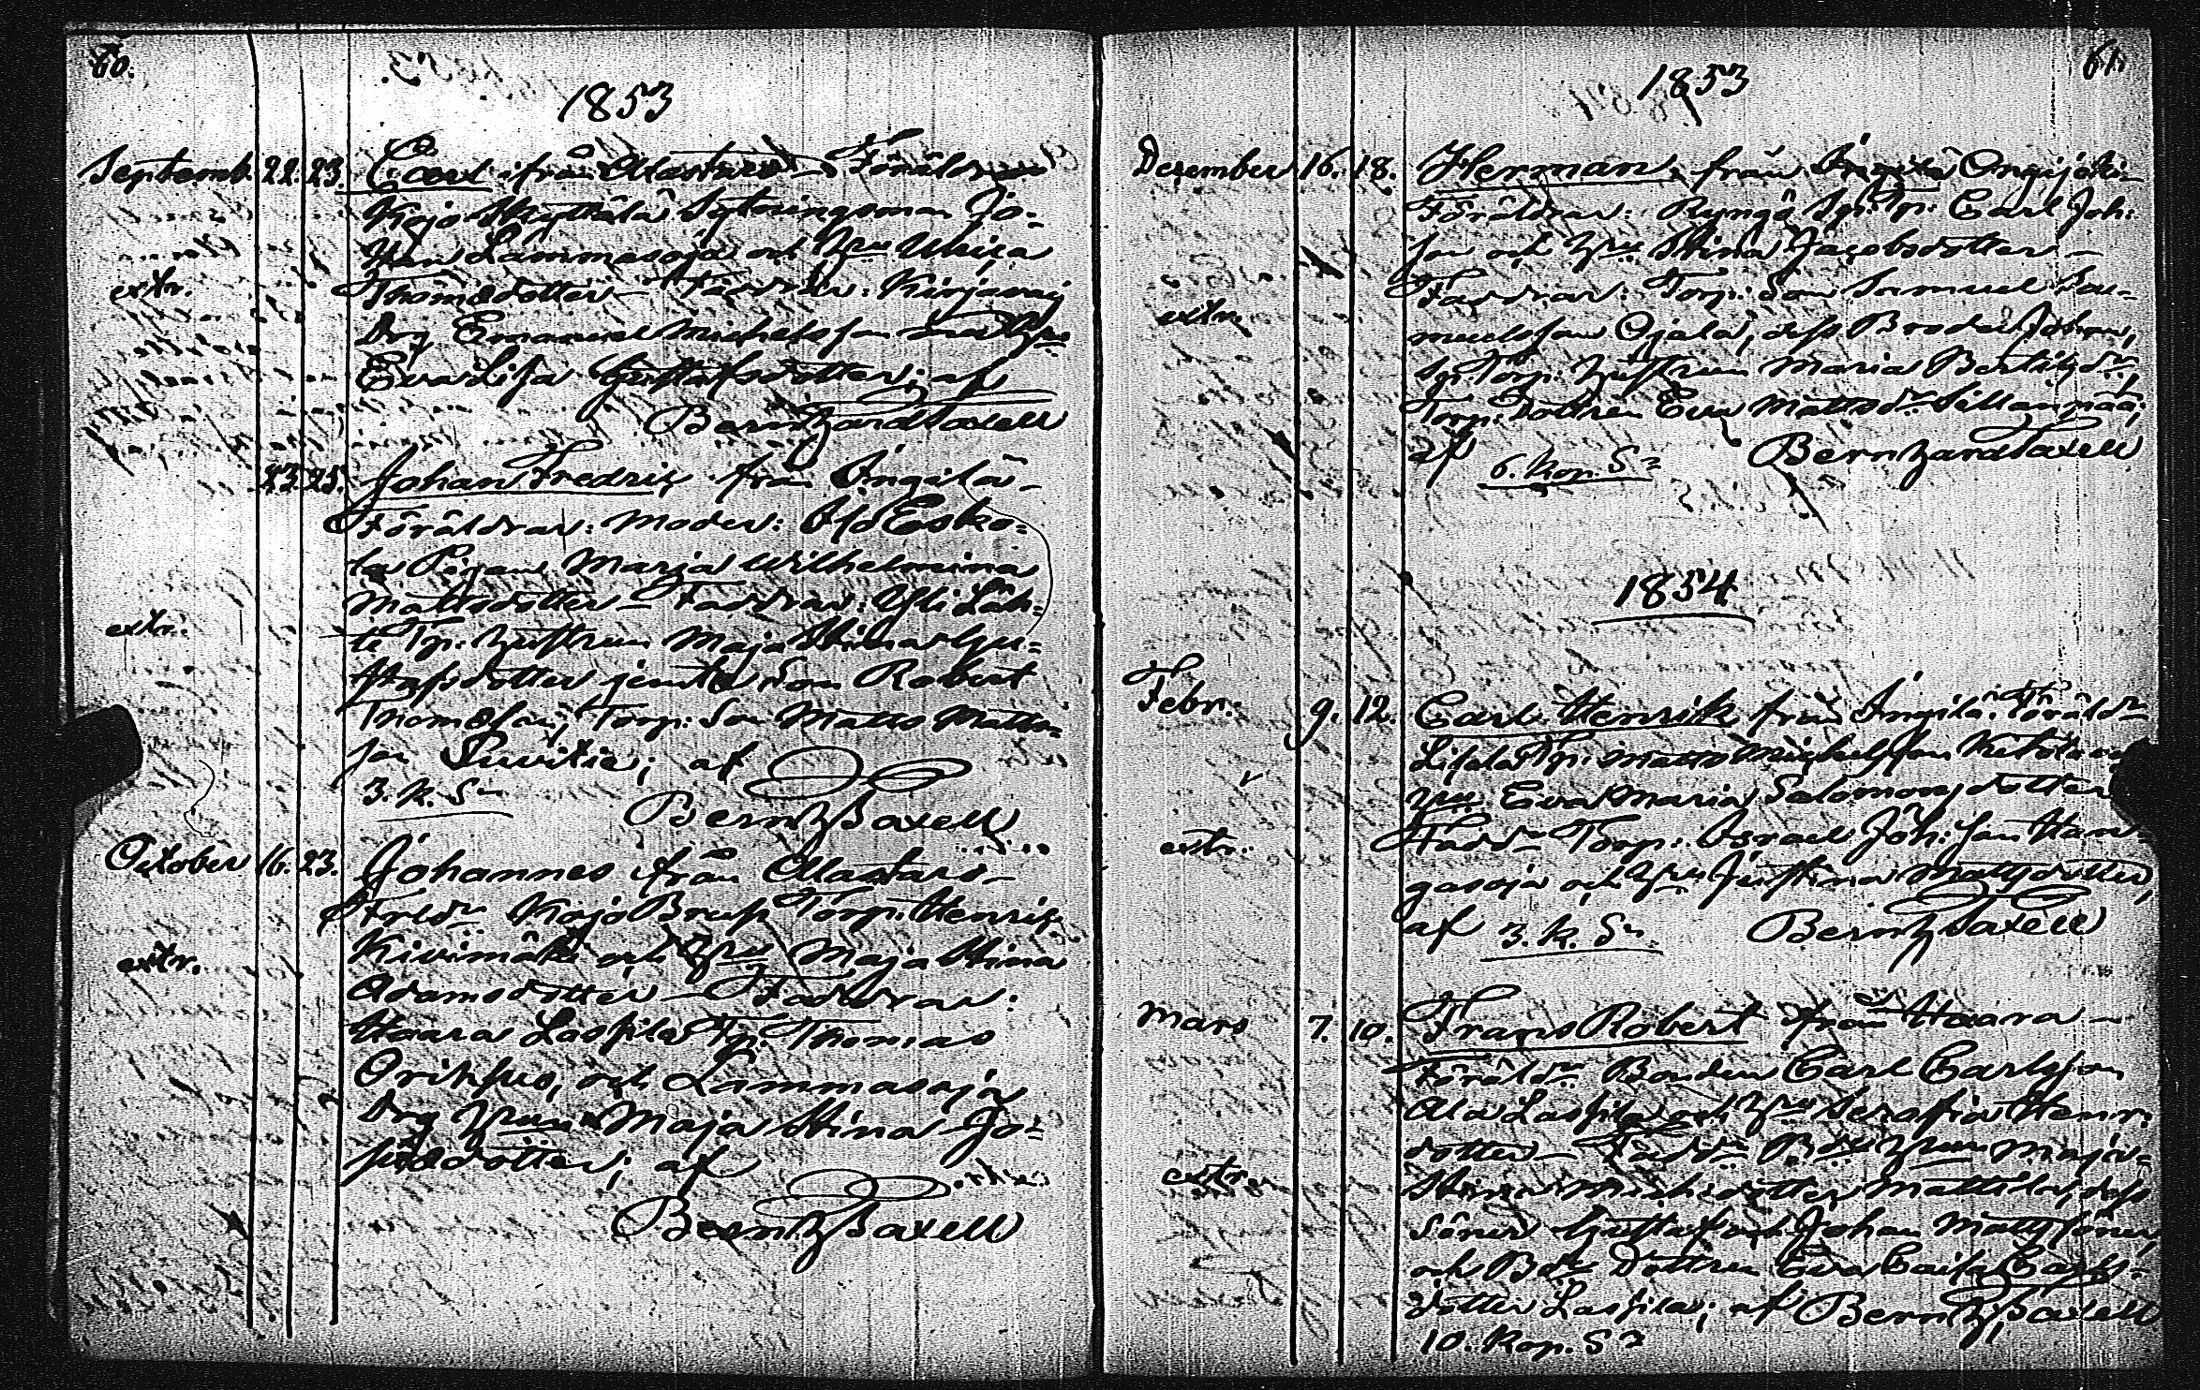 60.
1853
Septemb. 22. 23. Carl från Alastaro – Föräldrar
Kojo Skyttälä Sytningsman Jo-
han Lammasoja och Hru Ulrica
Thomædotter – Faddrar: Kirjavaj
extr.
Drg Emanuel Michelsson
Eva Lisa Gustafsdotter; af
Berntz Saxell
23. 25. Johan Fredric från Ingilä –
Föräldrar: Moder: Esko-
la Pigan Maria Wilhelmina
Mattsdotter – Faddrar: Yli Läh-
extr.
te Tp. Hustrun Maja Stina Gu-
stafsdotter jemte Son Robert
Thomæson, Torp. Son Matts Matts-
son; af
3. K. Sr
Berntz Saxell
October 16. 23. Johannes från Alastaro –
Förldr Kojo Torp. Henric
Kivimäki och Hru Maja Stina
extr.
Adamsdotter – Faddrar:
Haara Lassila Tp. Thomas
Orihsus, och Lammasoja
Drg Hrun Maja Stina Jo-
dotter; af
Berntz Saxell
61.
1853
December 16. 18. Herman från Ingilä
Föräldrar: Carl Joh:
son och Hru Stina Jacobsdotter –
Faddrar: Torp: Son Samuel Sa-
extr.
muelsson Ojala, dess Broder Johan,
Torp. Hustrun Maria Bertilsdr,
Torp. Dottren Eva Mattsdr Sillanpää;
af 6. Kop. Sr Berntz Saxell
1854
Febr: 9. 12. Carl Henrik från Ingilä. Föräldr
Tp. Matts Michelsson och
Hru Eva Maria Salomonsdotter
extr.
Faddr Torp: Israel Joh:son Han-
gasoja och Hru Justina Mattsdotter,
af 3. K. Sr. Berntz Saxell
Mars 7. 10. Frans Robert från Haara –
Föräldr Bonden Carl Carlsson
Ala Lassila och Hru Serafia Henr:
dotter – Faddr Bdn Hrun Maja
extr.
Stina Mich:dotter Mattila, dess
Söner Gustaf och Johan Matts söner,
och Bdn Dottren Eva Caisa Carls-
dotter Lassila; af Berntz Saxell
10. Kop. Sr